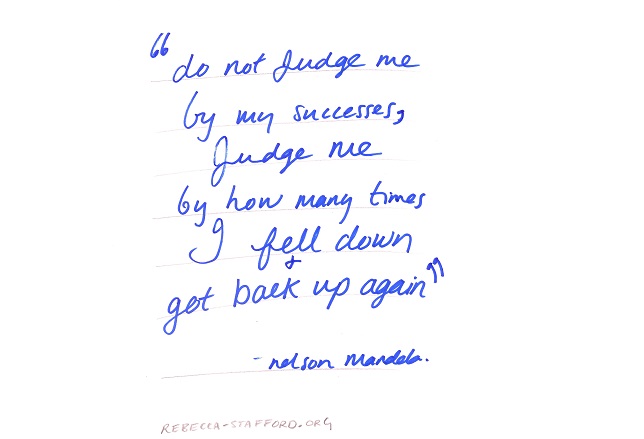 “ do not judge me
by my successes,
Judge me
by how many times
I fell down
&
got back up again”
- nelson mandela.
REBECCA-STAFFORD.ORG